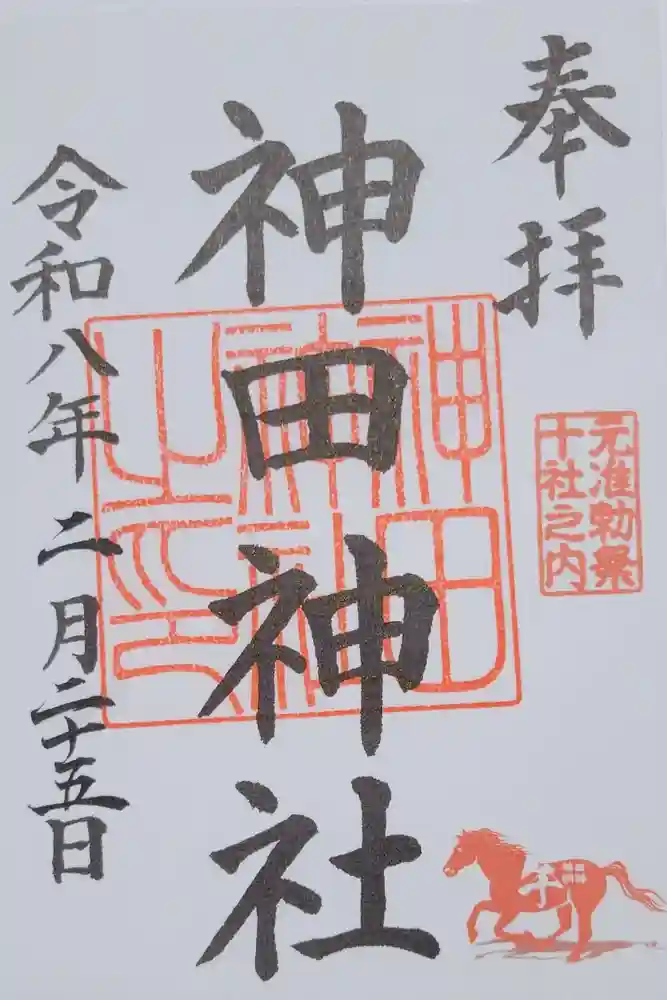 奉拝
元准勅祭
十社之内
神田神社
神田神社之印
令和八年二月二十五日